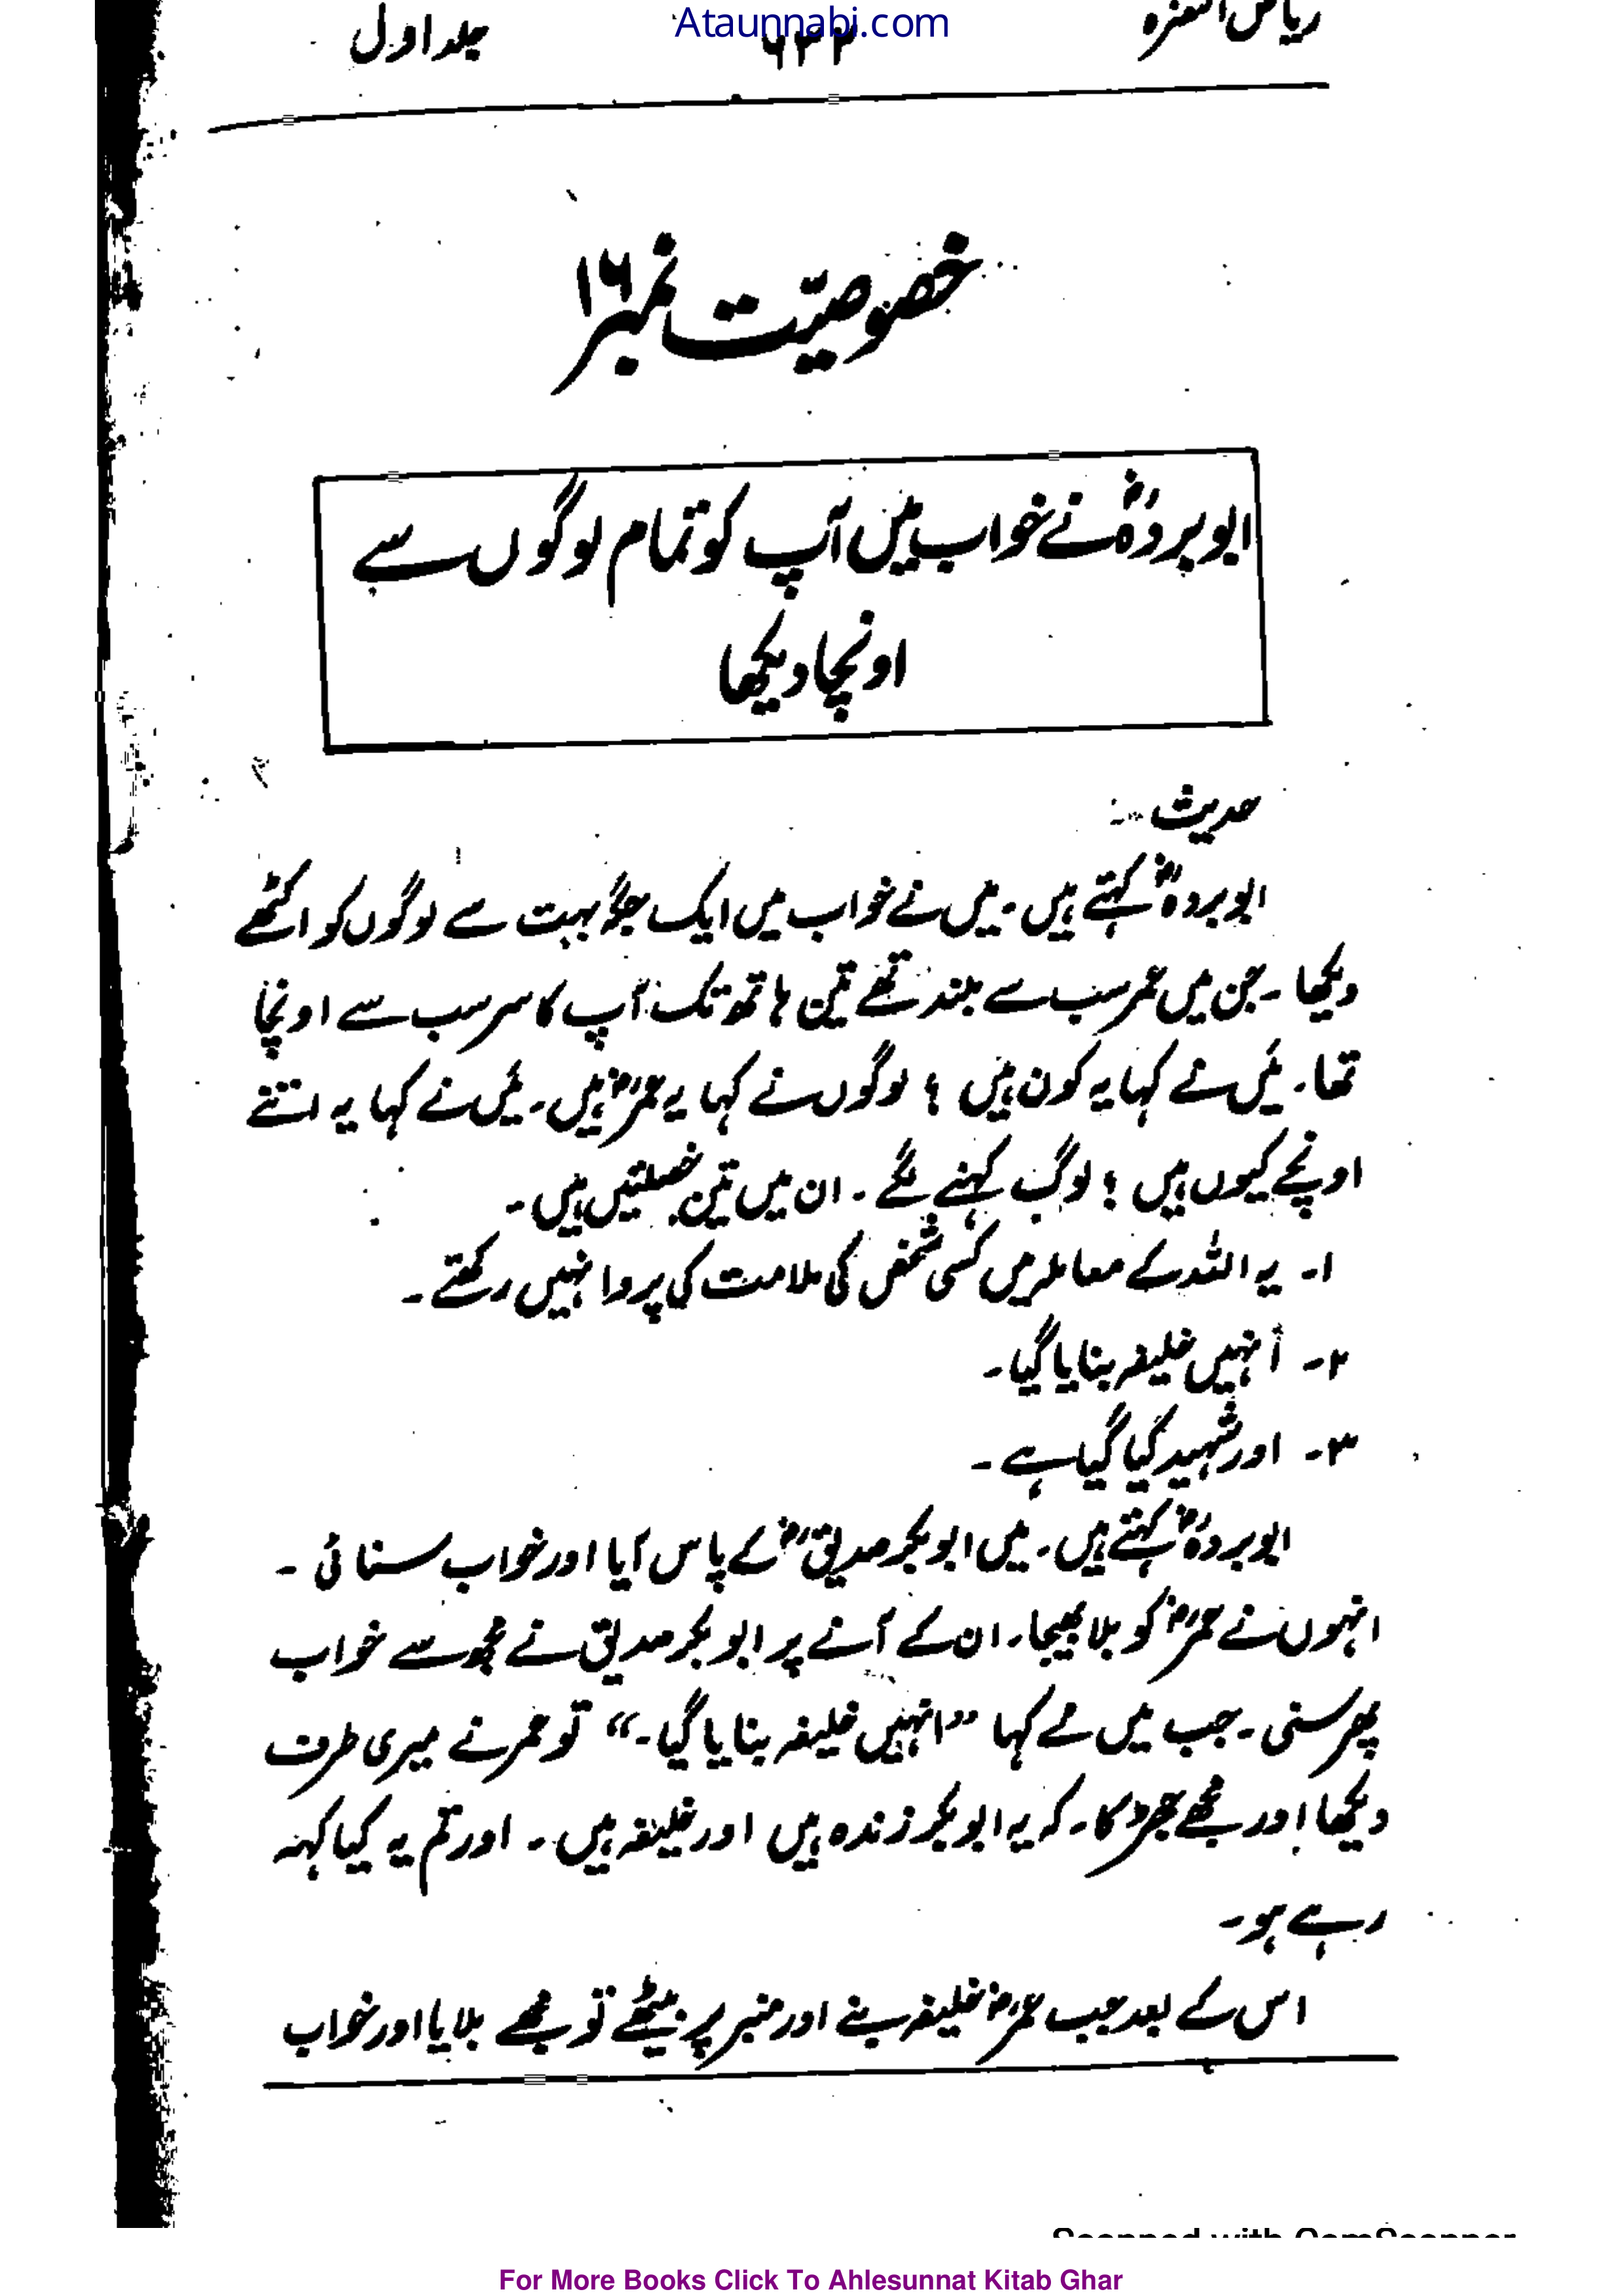 Ataunnabi.com
ریاض النضرہ ۶۳۲ جلد اول
خصوصیّت نمبر ۱۶
ابو بردہؓ نے خواب میں آپ کو تمام لوگوں سے
اونچا دیکھا
حدیث :-
ابو بردہؓ کہتے ہیں۔ میں نے خواب میں ایک جگہ بہت سے لوگوں کو اکٹھے
دیکھا۔ جن میں عمر سب سے بلند تھے تین ہاتھ تک آپ کا سر سب سے اونچا
تھا۔ میں نے کہا یہ کون ہیں ؟ لوگوں نے کہا یہ عمرؓ ہیں۔ میں نے کہا یہ اتنے
اونچے کیوں ہیں ؟ لوگ کہنے لگے۔ ان میں تین خصلتیں ہیں۔
۱۔ یہ اللہ کے معاملہ میں کسی شخص کی ملامت کی پروا نہیں رکھتے۔
۲۔ اُنہیں خلیفہ بنایا گیا۔
۳۔ اور شہید کیا گیا ہے۔
ابو بردہؓ کہتے ہیں۔ میں ابوبکر صدیقؓ کے پاس آیا اور خواب سنائی۔
انہوں نے عمرؓ کو بلا بھیجا۔ ان کے آنے پر ابو بکر صدیق نے مجھ سے خواب
پھر سنی۔ جب میں نے کہا ”انہیں خلیفہ بنایا گیا۔“ تو عمر نے میری طرف
دیکھا اور مجھے جھڑکا۔ کہ یہ ابوبکر زندہ ہیں اور خلیفہ ہیں۔ اور تم یہ کیا کہہ
رہے ہو۔
اس کے بعد جب عمرؓ خلیفہ بنے اور منبر پر بیٹھے تو مجھے بلایا اور خواب
Scanned with CamScanner
For More Books Click To Ahlesunnat Kitab Ghar